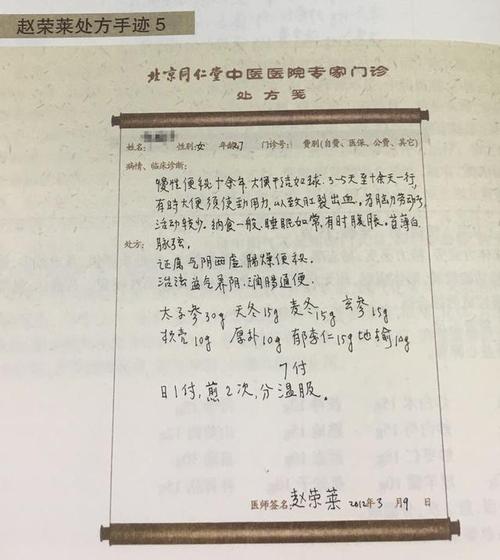 赵荣莱处方手迹5
北京同仁堂中医医院专家门诊
处方笺
姓名: 性别:女 年龄: 门诊号: 费别(自费、医保、公费、其它)
病情、临床诊断:
慢性便秘十余年,大便干结如球,3-5天至十余天一行,
有时大便须使劲用力,以致肛裂出血。若脑力劳动多,
活动较少。纳食一般,睡眠如常,有时腹胀。苔薄白,
脉弦。
处方:
证属气阴两虚,肠燥便秘。
治法益气养阴,润肠通便。
太子参30g 天冬15g 麦冬15g 玄参15g
枳壳10g 厚朴10g 郁李仁15g 地榆10g
7付
日1付,煎2次,分温服。
医师签名 赵荣莱 2012年3月9日